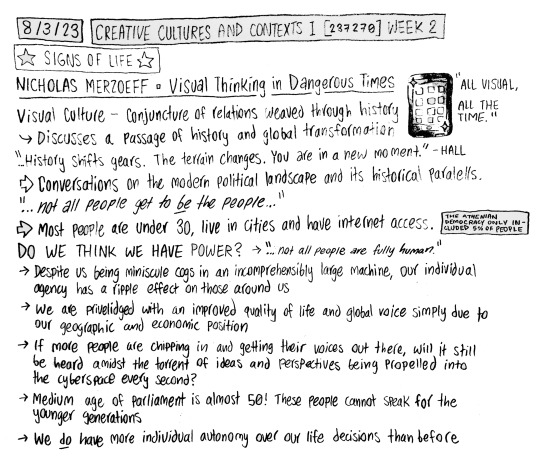 8/3/23 CREATIVE CULTURES AND CONTEXTS I [237270] WEEK 2
☆ SIGNS OF LIFE ☆
NICHOLAS MERZOEFF • Visual Thinking in Dangerous Times
"ALL VISUAL,
ALL THE
TIME."
Visual Culture – Conjuncture of relations weaved through history
↳ Discusses a passage of history and global transformation
"...History shifts gears. The terrain changes. You are in a new moment." -HALL
⇨ Conversations on the modern political landscape and its historical paralells.
"... not all people get to be the people..."
⇨ Most people are under 30, live in cities and have internet access.
THE ATHENIAN
DEMOCRACY ONLY IN-
CLUDED 5% OF PEOPLE
DO WE THINK WE HAVE POWER? → "... not all people are fully human."
→ Despite us being miniscule cogs in an incomprehensibly large machine, our individual
agency has a ripple effect on those around us
→ We are privelidged with an improved quality of life and global voice simply due to
our geographic and economic position
→ If more people are chipping in and getting their voices out there, will it still
be heard amidst the torrent of ideas and perspectives being propelled into
the cyberspace every second?
→ Medium age of parliament is almost 50! These people cannot speak for the
younger generations
→ We do have more individual autonomy over our life decisions than before